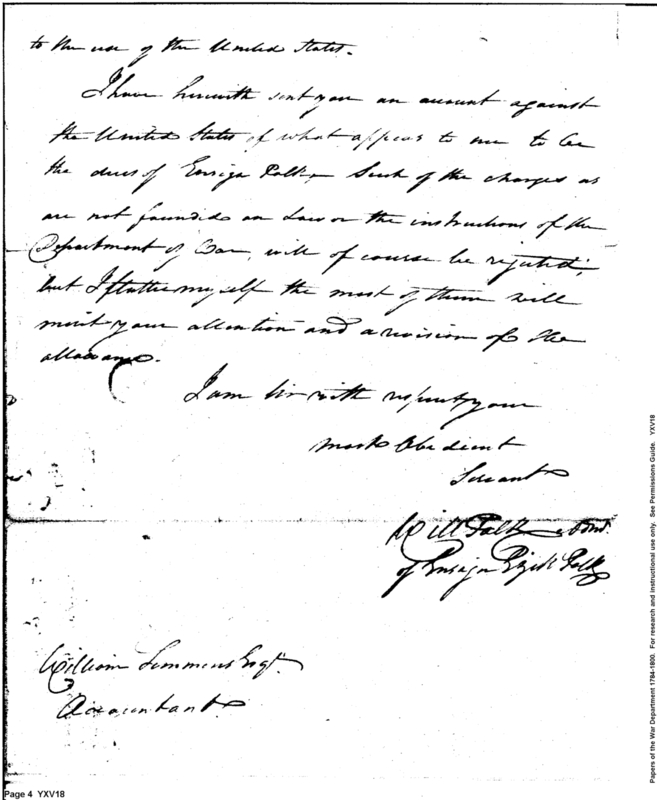 to the use of the United States.
I have herewith sent you an account against
the United States of what appears to me to be
the dues of Ensign Polk. Such of the charges as
are not founded on Law or the instructions of the
Department of War, will of course be rejected,
but I flatter myself the most of them will
merit your attention and a revision of the
allowance.
I am Sir with respect your
most Obedient
Servant
Will Polk
of Ensign Polk
William Simmons Esqr.
Accountant
Page 4 YXV18
Papers of the War Department 1784-1800. For research and instructional use only. See Permissions Guide. YXV18